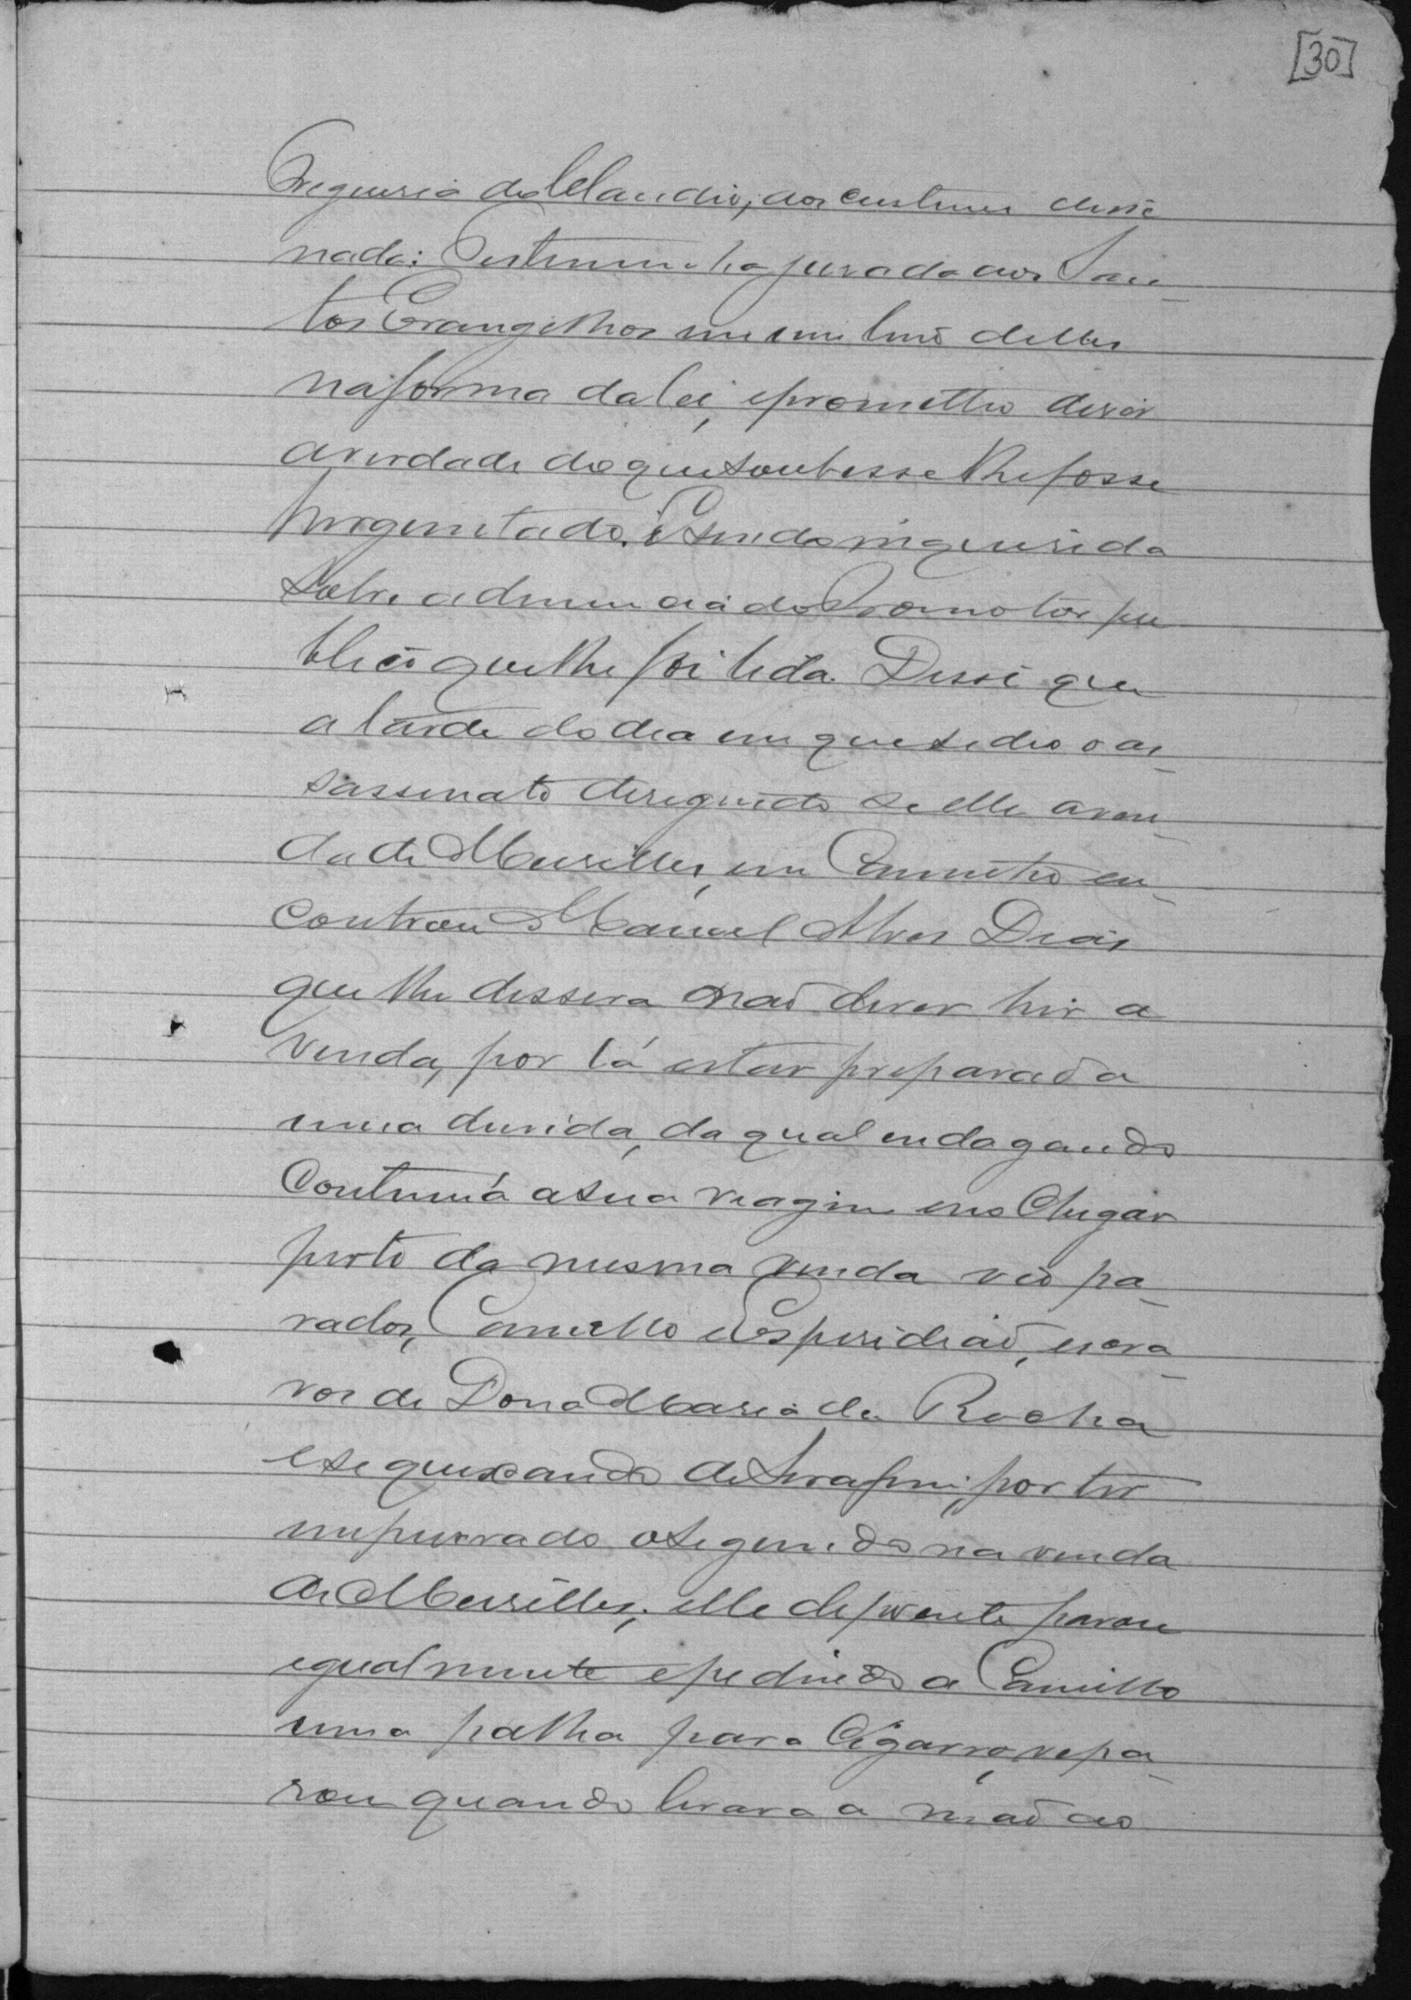 [30]
Freguesia do Claudio, aos custumes disse
nada: Testemunha jurada aos San-
tos Evangelhos em um livro delles
na forma da lei, e prometteo diser
a verdade do que soubesse e lhe fosse
perguntado. E sendo inquerida
sobre a denuncia do Promotor pu
blico que lhe foi lida. Disse que
a tarde do dia em que se deo o as-
sassinato derigindo se elle a ven-
da de Meirelles, em caminho en-
controu Manoel Alves Dias
que lhe dissera não dever hir a
venda, por lá estar preparada
uma duvida, da qual endagando
continuá a sua viagem e no chegar
perto da mesma venda vio pa-
rados, Camillo e Esperidião, escra-
vos de Dona Maria da Rocha
e se queixando de Serafim, por ter
impurrado o segundo na venda
de Meirelles; elle depoente parou
igualmente e pedindo a Camillo
uma palha para cigarro, repa-
rou quando levava a mão ao